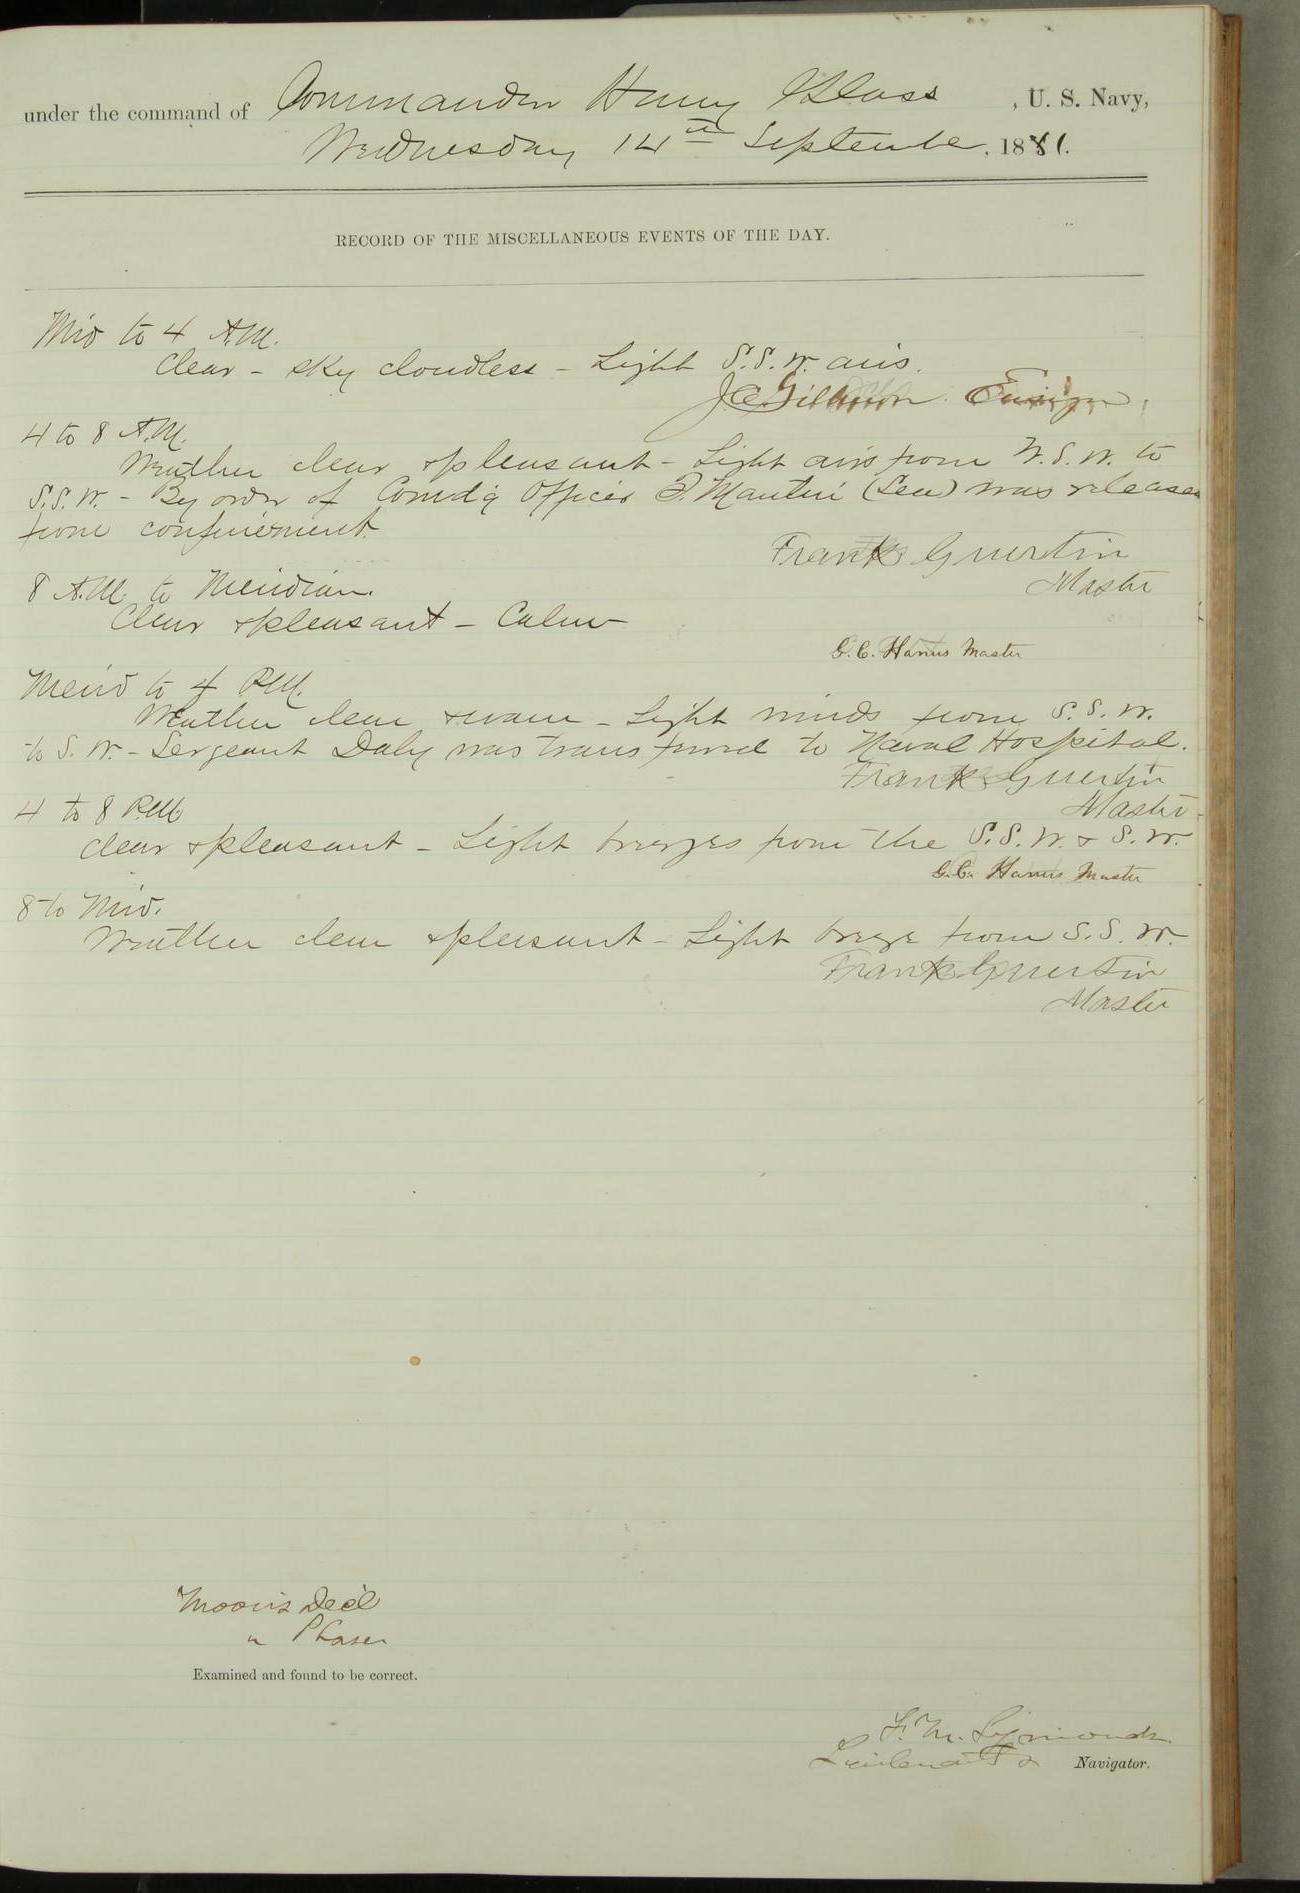 under the command of Commander Henry Glass, U. S. Navy,
Wednesday 14th September, 1881.
RECORD OF THE MISCELLANEOUS EVENTS OF THE DAY.
Mid to 4 A.M.
Clear - sky cloudless - Light S.S.W. airs.
J C Gillmore. Ensign.
4 to 8 A.M.
Weather clear & pleasant - Light airs from W.S.W. to
S.S.W. - By order of Comd'g Officer (Sea) was released
from confinement.
Frank Guertin
Master
8 A.M. to Meridian.
Clear & pleasant - Calm
G. C. Hanus Master
Merid to 4 P.M.
Weather clear & warm - Light winds from S.S.W.
to S.W. - Sergeant Daly was transferred to Naval Hospital.
Frank Guertin
Master.
4 to 8 P.M.
Clear & pleasant - Light breezes from the S.S.W. & S.W.
G. C. Hanus Master
8 to Mid.
Weather clear & pleasant - Light breeze from S.S.W.
Frank Guertin
Master
Moon's Decl
" Phases
Examined and found to be correct.
F. M. Symonds
Lieutenant & Navigator.